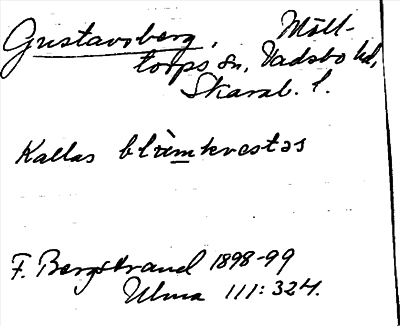 Gustavsberg, Möll-
torps sn, Vadsbo hd,
Skarab. l.
Kallas blìmkvestəs
F. Bergstrand 1898-99
Ulma 111:324.